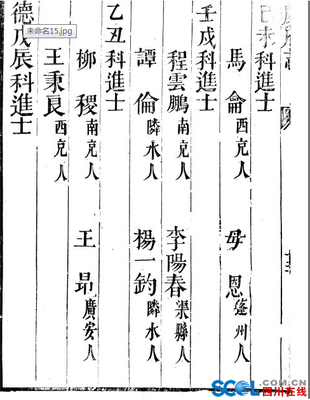 己未科進士
馬龠西充人　毋恩蓬州人
壬戌科進士
程雲鵬南充人　李陽春渠縣人
譚倫隣水人　楊一鈞隣水人
乙丑科進士
柳稷南充人　王昂廣安人
王秉良西充人
德戊辰科進士
未命名15.jpg
SCOL.COM.CN
四川在线